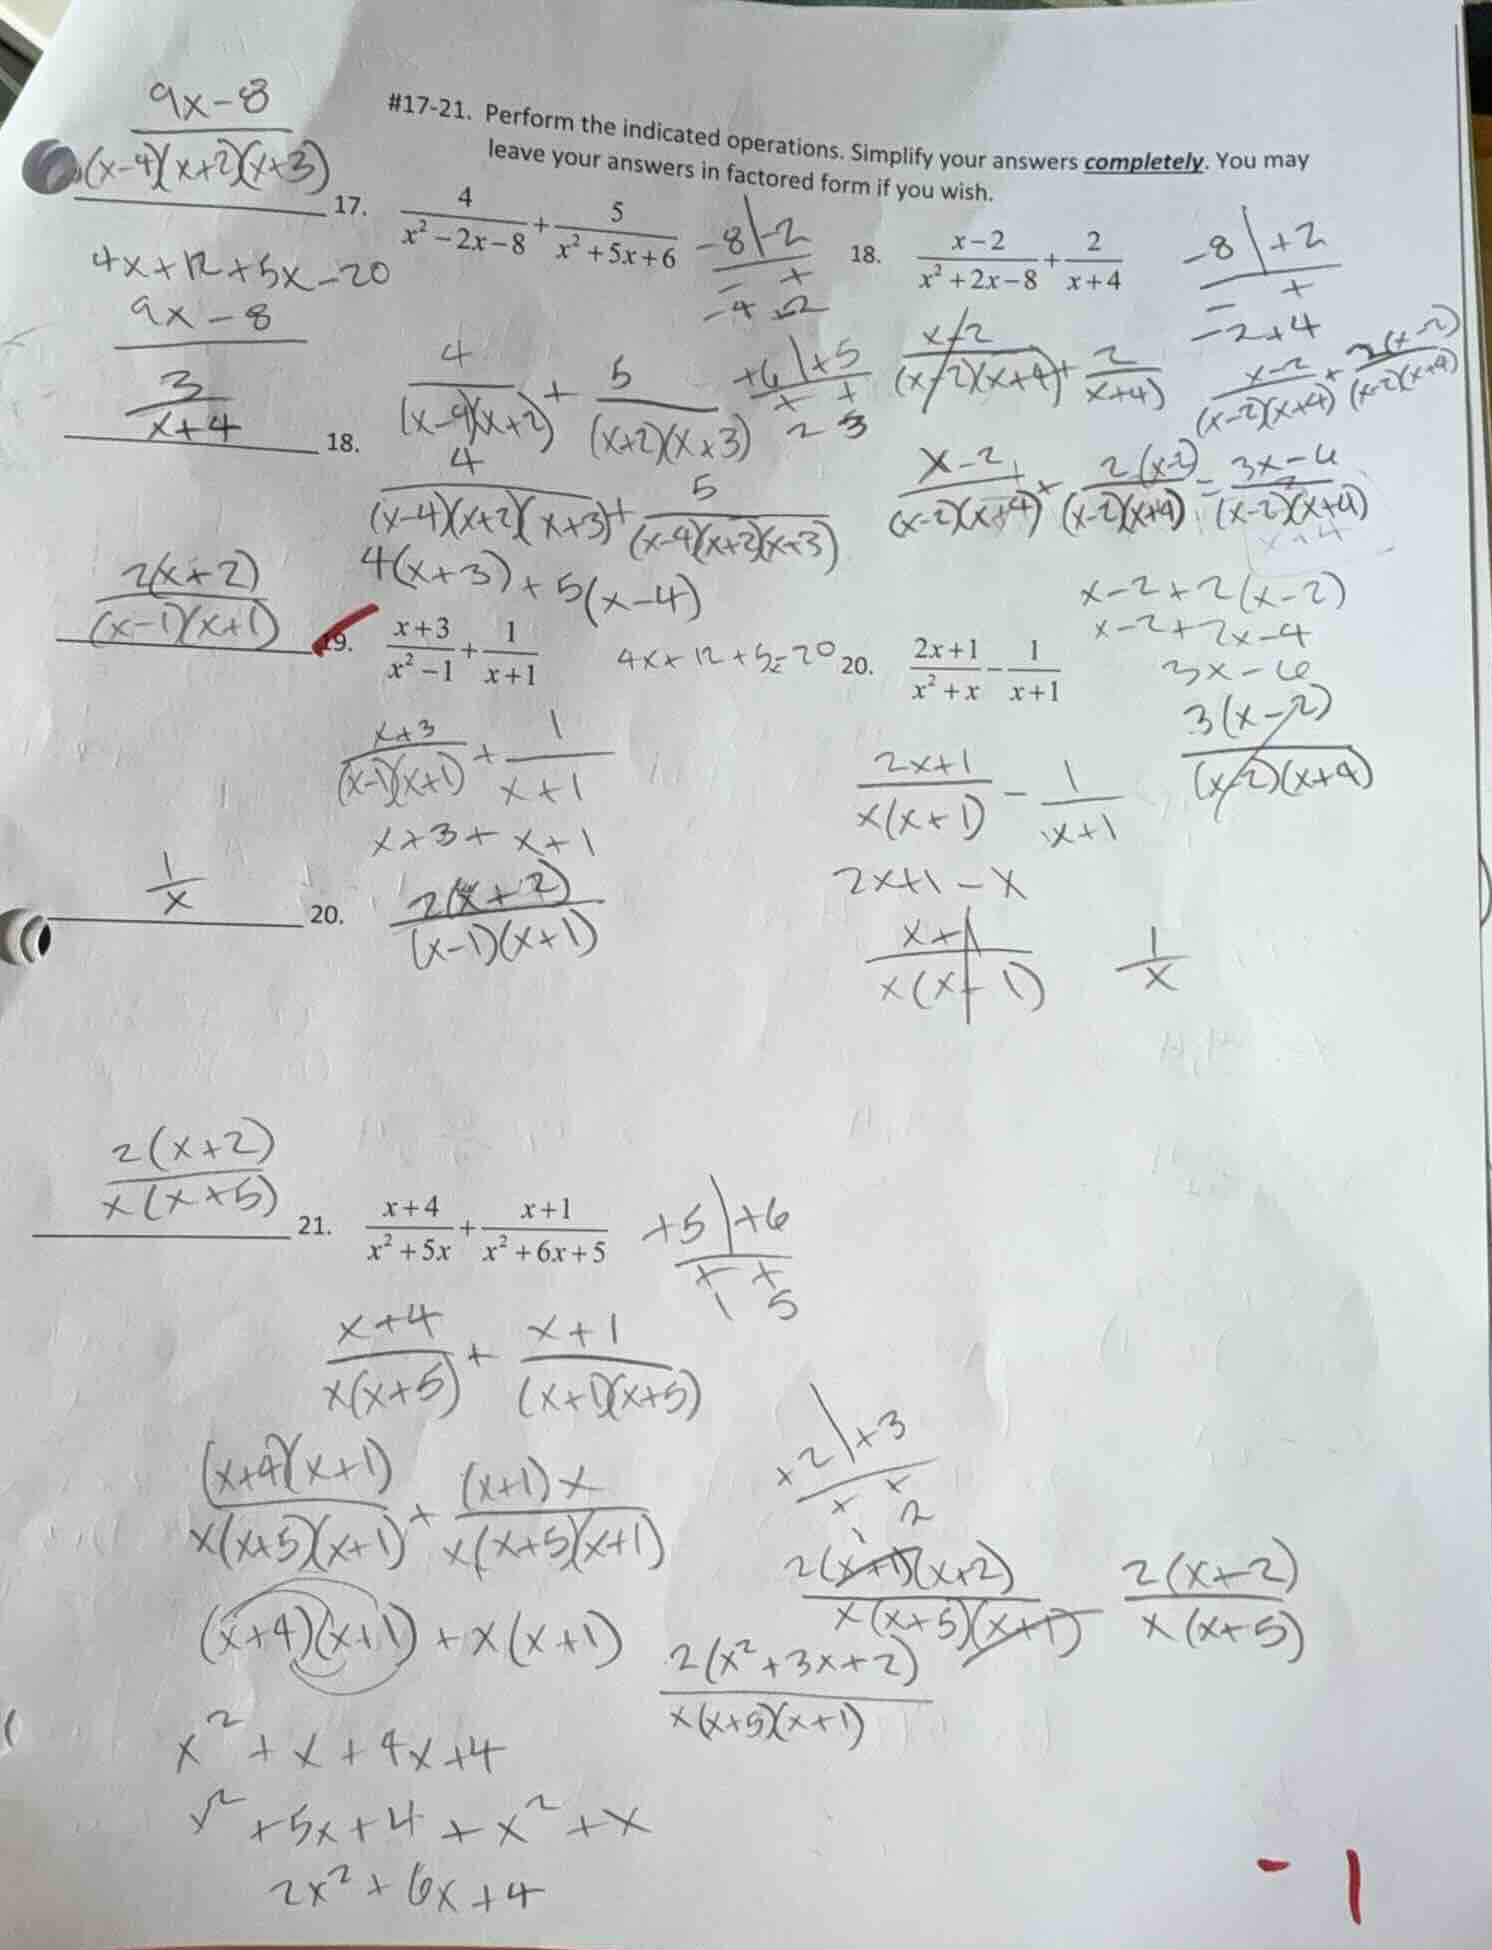 #17-21. Perform the indicated operations. Simplify your answers completely. You may
leave your answers in factored form if you wish.
9x-8
(x-4)(x+2)(x+3)
17. 4/(x²-2x-8) + 5/(x²+5x+6)
-8 | -2
- +
-4 +2
4x+12+5x-20
9x-8
4/((x-4)(x+2)) + 5/((x+2)(x+3))
+6 | +5
+ +
2 3
4/((x-4)(x+2)(x+3)) + 5/((x-4)(x+2)(x+3))
4(x+3) + 5(x-4)
4x+12+5x-20
18. (x-2)/(x²+2x-8) + 2/(x+4)
-8 | +2
- +
-2 +4
3/(x+4)
18.
(x-2)/((x-2)(x+4)) + 2/(x+4)
(x-2)/((x-2)(x+4)) + 2(x-2)/((x-2)(x+4))
(x-2)/((x-2)(x+4)) + 2(x-2)/((x-2)(x+4)) = (3x-6)/((x-2)(x+4))
x-2+2(x-2)
x-2+2x-4
3x-6
3(x-2)
(x-2)(x+4)
2(x+2)
(x-1)(x+1)
19. (x+3)/(x²-1) + 1/(x+1)
(x+3)/((x-1)(x+1)) + 1/(x+1)
x+3+x+1
2(x+2)
(x-1)(x+1)
20. (2x+1)/(x²+x) - 1/(x+1)
(2x+1)/(x(x+1)) - 1/(x+1)
2x+1-x
(x+1)/(x(x+1))
1/x
1/x
20.
2(x+2)
x(x+5)
21. (x+4)/(x²+5x) + (x+1)/(x²+6x+5)
+5 | +6
+ +
1 5
(x+4)/(x(x+5)) + (x+1)/((x+1)(x+5))
(x+4)(x+1)/(x(x+5)(x+1)) + (x+1)x/(x(x+5)(x+1))
(x+4)(x+1)+x(x+1)
x²+x+4x+4
x²+5x+4+x²+x
2x²+6x+4
+2 | +3
+ +
1 2
2(x²+3x+2)
x(x+5)(x+1)
2(x+1)(x+2)
x(x+5)(x+1)
2(x+2)
x(x+5)
-1